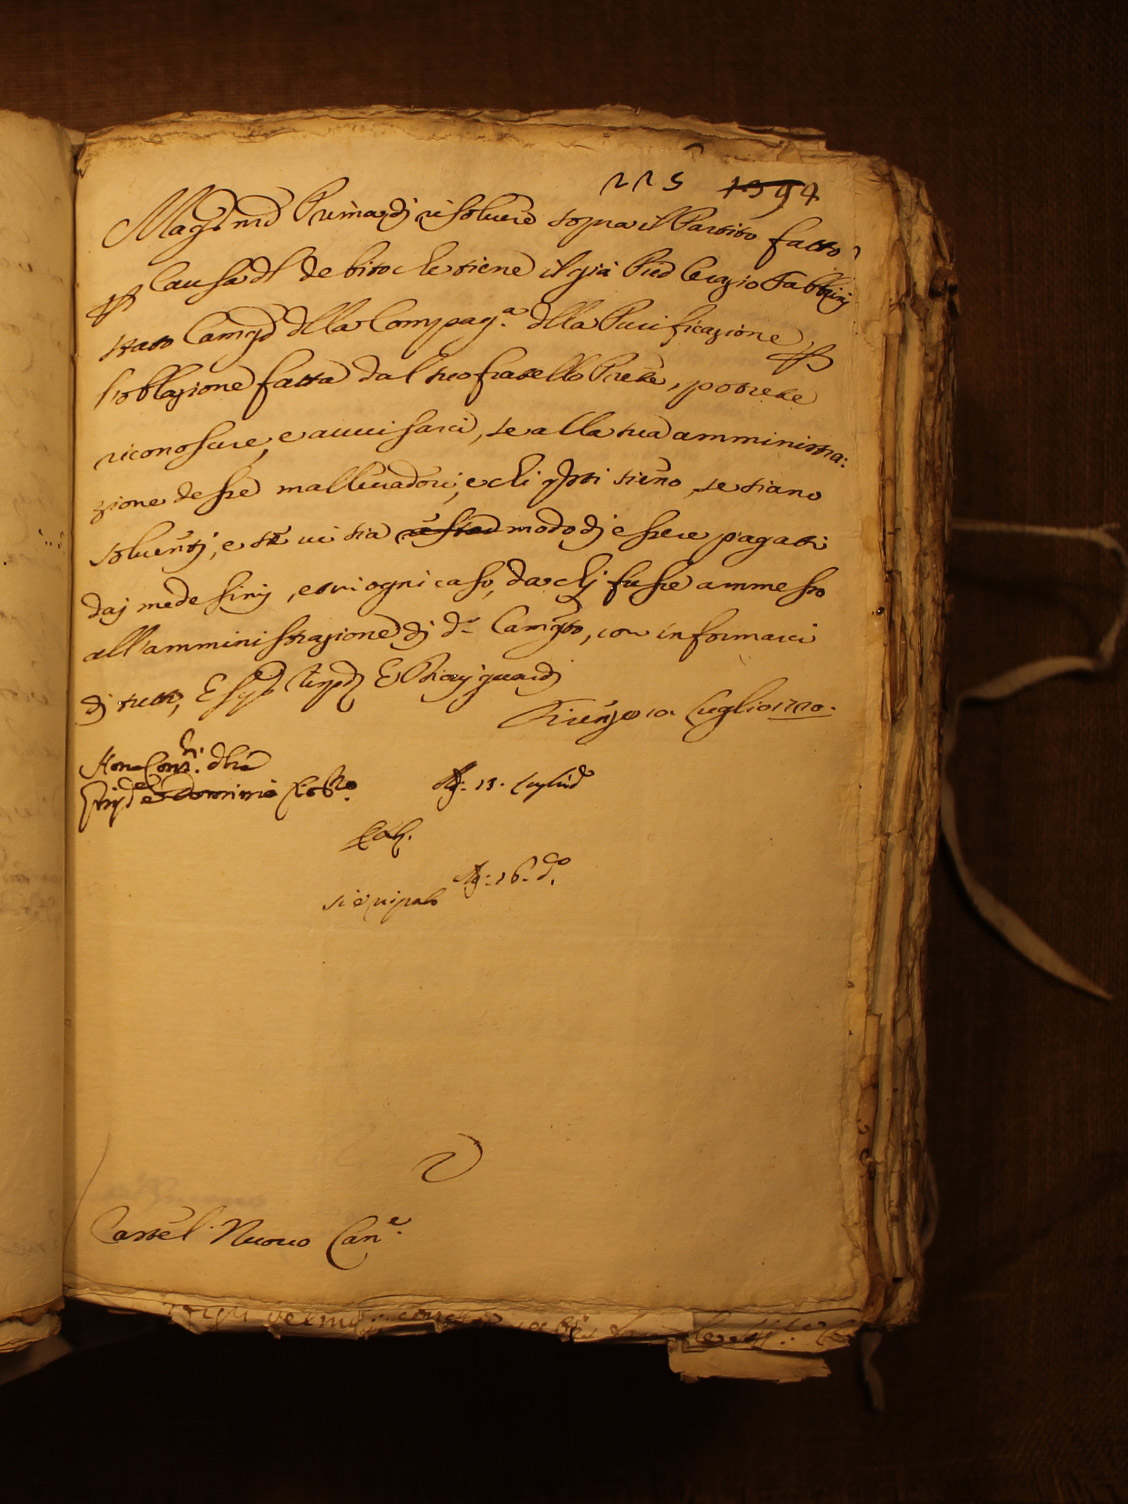 225 1394
Mag.co mio Prima di risoluere sopra il Partito fatto
Causa del debito che tiene il già Orazio Fabbrinj
stato Camg.o della Compag.a della Purificazione
l'oblazione fatta dal suo fratello Prete, potrete
riconoscere, e auuisarci, se alla sua amminisra:
zione desse malleuadori, e chi questi sieno, se siano
soluentj, e se ui sia modo dj essere pagati
daj medesimj, et in ogni caso, da chj fusse ammesso
all'amministrazione dj d.o Camg.to, con informarci
dj tutto, E Iddio ui guardj
Firenze 10 Luglio 1720.
Adj: 13. Luglio d.o
Adj: 16. d.o
si è uisto
Castel Nuouo Can.e